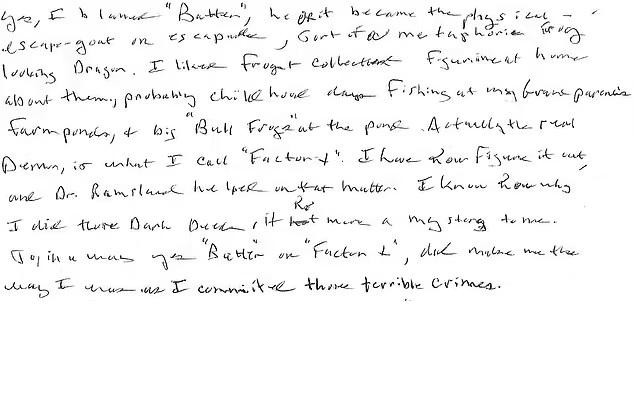 Yes, I blamed "Batter", he or it became the physical -
escape-goat or escapade, sort of a metaphoric frog
looking Dragon. I liked frogs & collected figurine at home
about them, probably childhood days fishing at my Grandparents
farm ponds, & big "Bull Frogs" at the pond. Actually the real
Demon, is what I call "Factor X". I have now figure it out,
and Dr. Ramsland helped on that matter. I know now why
I did those Dark Deeds, it no more a mystery to me.
So, in a way yes "Batter" or "Factor X", did make me the
way I was as I committed those terrible crimes.